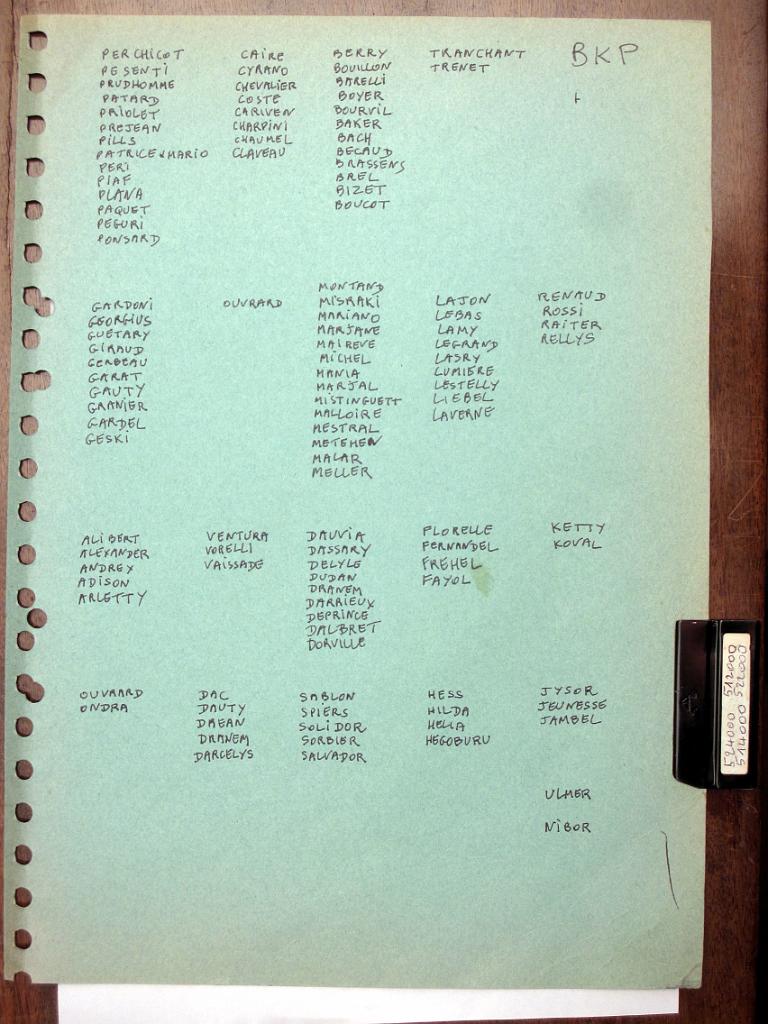 BKP
PERCHICOT
PESENTI
PRUDHOMME
PATARD
PRIOLET
PREJEAN
PILLS
PATRICE & MARIO
PERI
PIAF
PLANA
PAQUET
PEGURI
PONSARD
CAIRE
CYRANO
CHEVALIER
COSTE
CARIVEN
CHARPINI
CHAUMEL
CLAVEAU
BERRY
BOUILLON
BARELLI
BOYER
BOURVIL
BAKER
BACH
BECAUD
BRASSENS
BREL
BIZET
BOUCOT
TRANCHANT
TRENET
GARDONI
GEORGIUS
GUETARY
GIRAUD
GERBEAU
GARAT
GAUTY
GRANIER
GARDEL
GESKI
OUVRARD
MONTAND
MISRAKI
MARIANO
MARJANE
MAIREVE
MICHEL
MANIA
MARJAL
MISTINGUETT
MALLOIRE
MESTRAL
METEHEN
MALAR
MELLER
LAJON
LEBAS
LAMY
LEGRAND
LASRY
LUMIERE
LESTELLY
LIEBEL
LAVERNE
RENAUD
ROSSI
RAITER
RELLYS
ALIBERT
ALEXANDER
ANDREX
ADISON
ARLETTY
VENTURA
VORELLI
VAISSADE
DAUVIA
DASSARY
DELYLE
DUDAN
DRANEM
DARRIEUX
DEPRINCE
DALBRET
DORVILLE
FLORELLE
FERNANDEL
FREHEL
FAYOL
KETTY
KOVAL
OUVRARD
ONDRA
DAC
DAUTY
DAEAN
DRANEM
DARCELYS
SABLON
SPIERS
SOLIDOR
SORBIER
SALVADOR
HESS
HILDA
HELIA
HEGOBURU
JYSOR
JEUNESSE
JAMBEL
ULMER
NIBOR
524000 512000
514000 522000